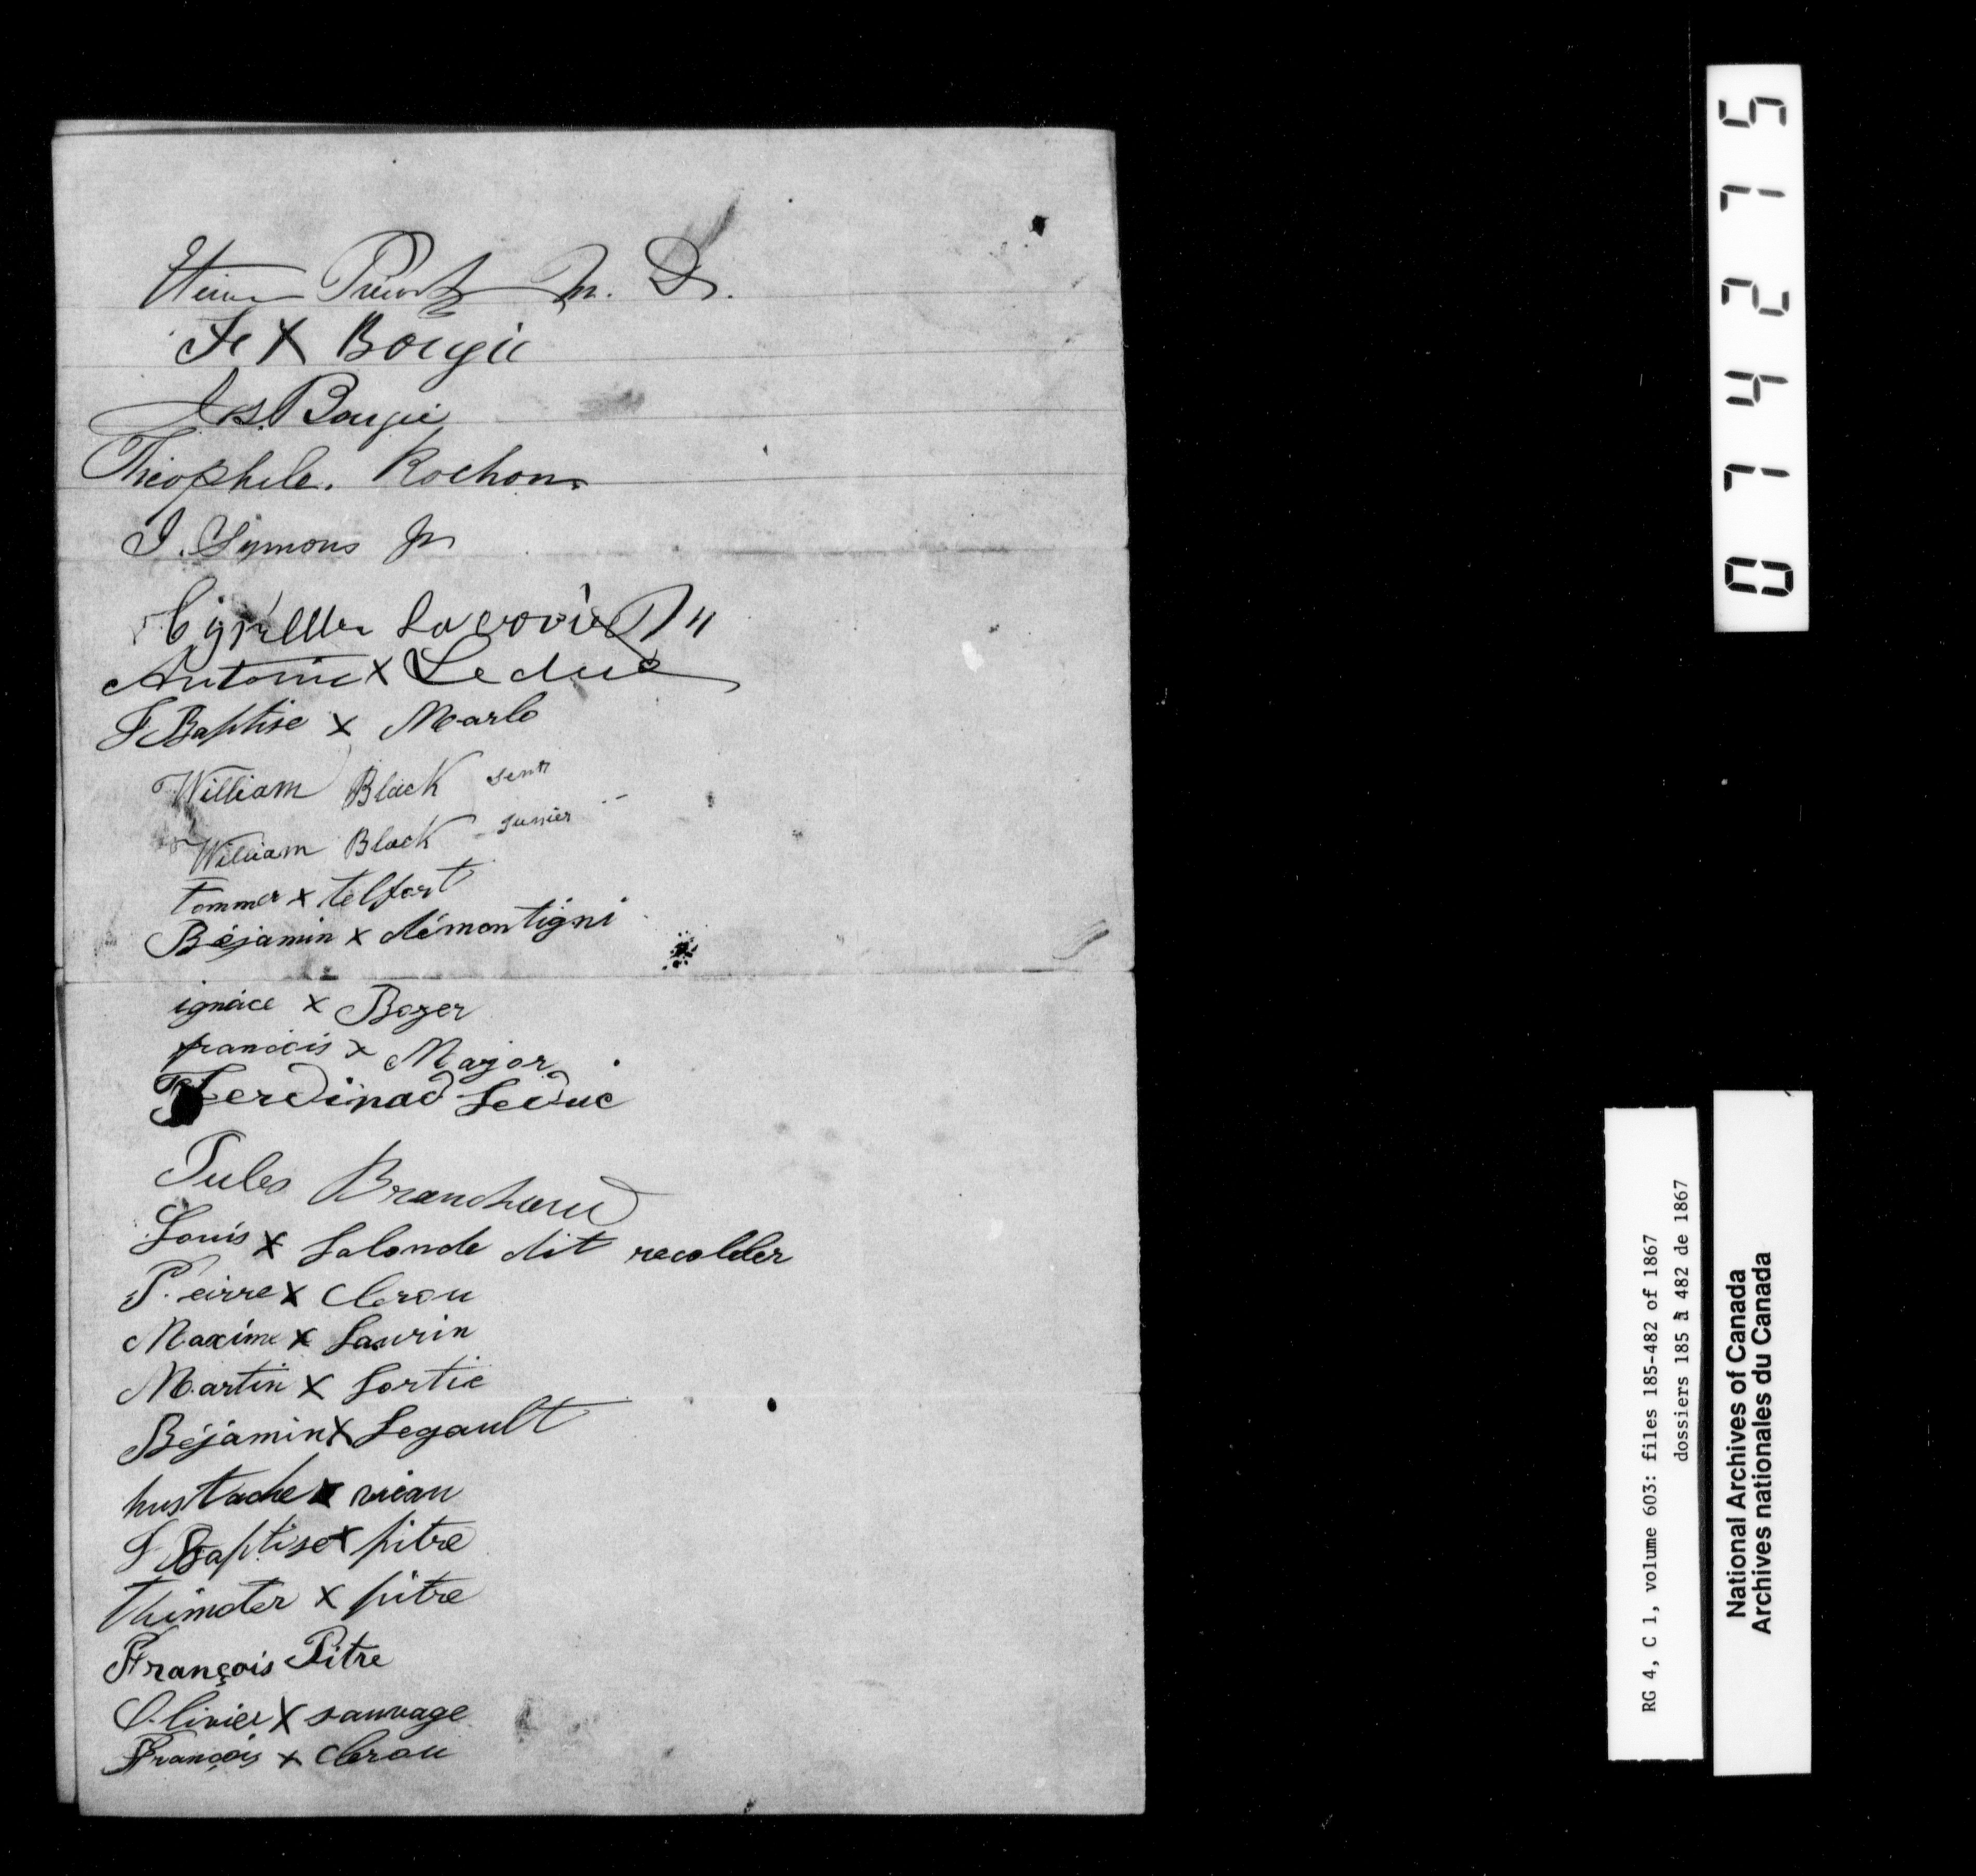 Prévost M. D.
Fr X Bougie
Js. Bougie
Théophile. Rochon
J. Symons Jr
Antoine x Leduc
J Baptise x Marlo
William Black senr
William Black junier
Tommer x telfort
Béjamin x démontigni
ignace x Boyer
francois x Major
Ferdinad Leduc
Jules Branchaud
Louis x Lalonde dit recolder
P. eirre x Clerou
Maxime x Laurin
Martin x Lortie
Béjamin x Legault
hustache x riau
J Baptise x pitre
thimoter x pitre
François Pitre
Olivier x sauvage
François x Clerou
074275
RG 4, C 1, volume 603: files 185-482 of 1867
dossiers 185 à 482 de 1867
National Archives of Canada
Archives nationales du Canada